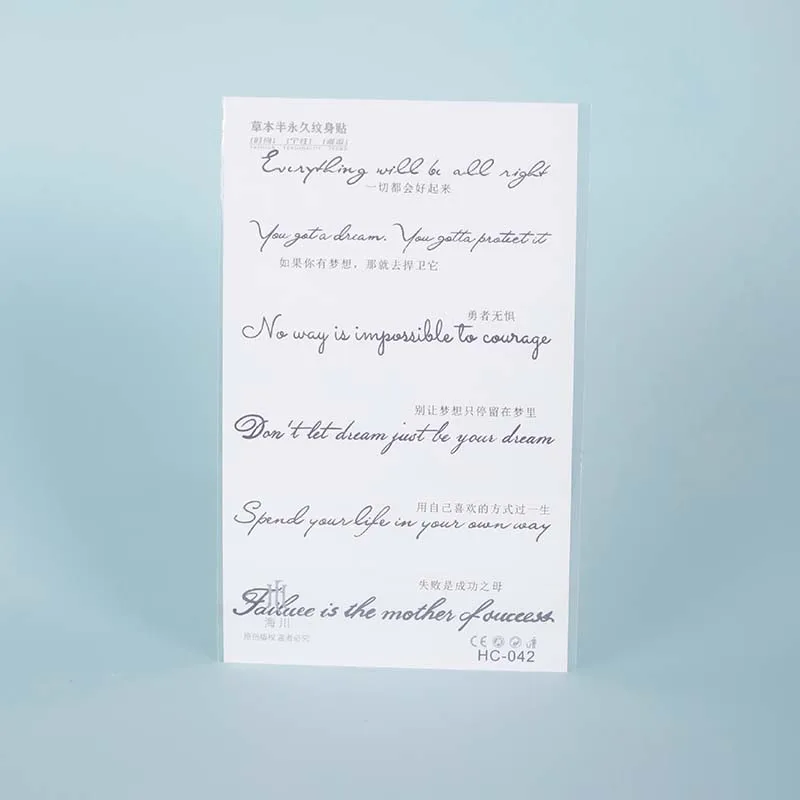 草本半永久纹身贴
Everything will be all right
一切都会好起来
You got a dream. You gotta protect it
如果你有梦想，那就去捍卫它
勇者无惧
No way is impossible to courage
别让梦想只停留在梦里
Don't let dream just be your dream
用自己喜欢的方式过一生
Spend your life in your own way
失败是成功之母
Failuee is the mother of success
海川
原创版权 盗者必究
CE
HC-042